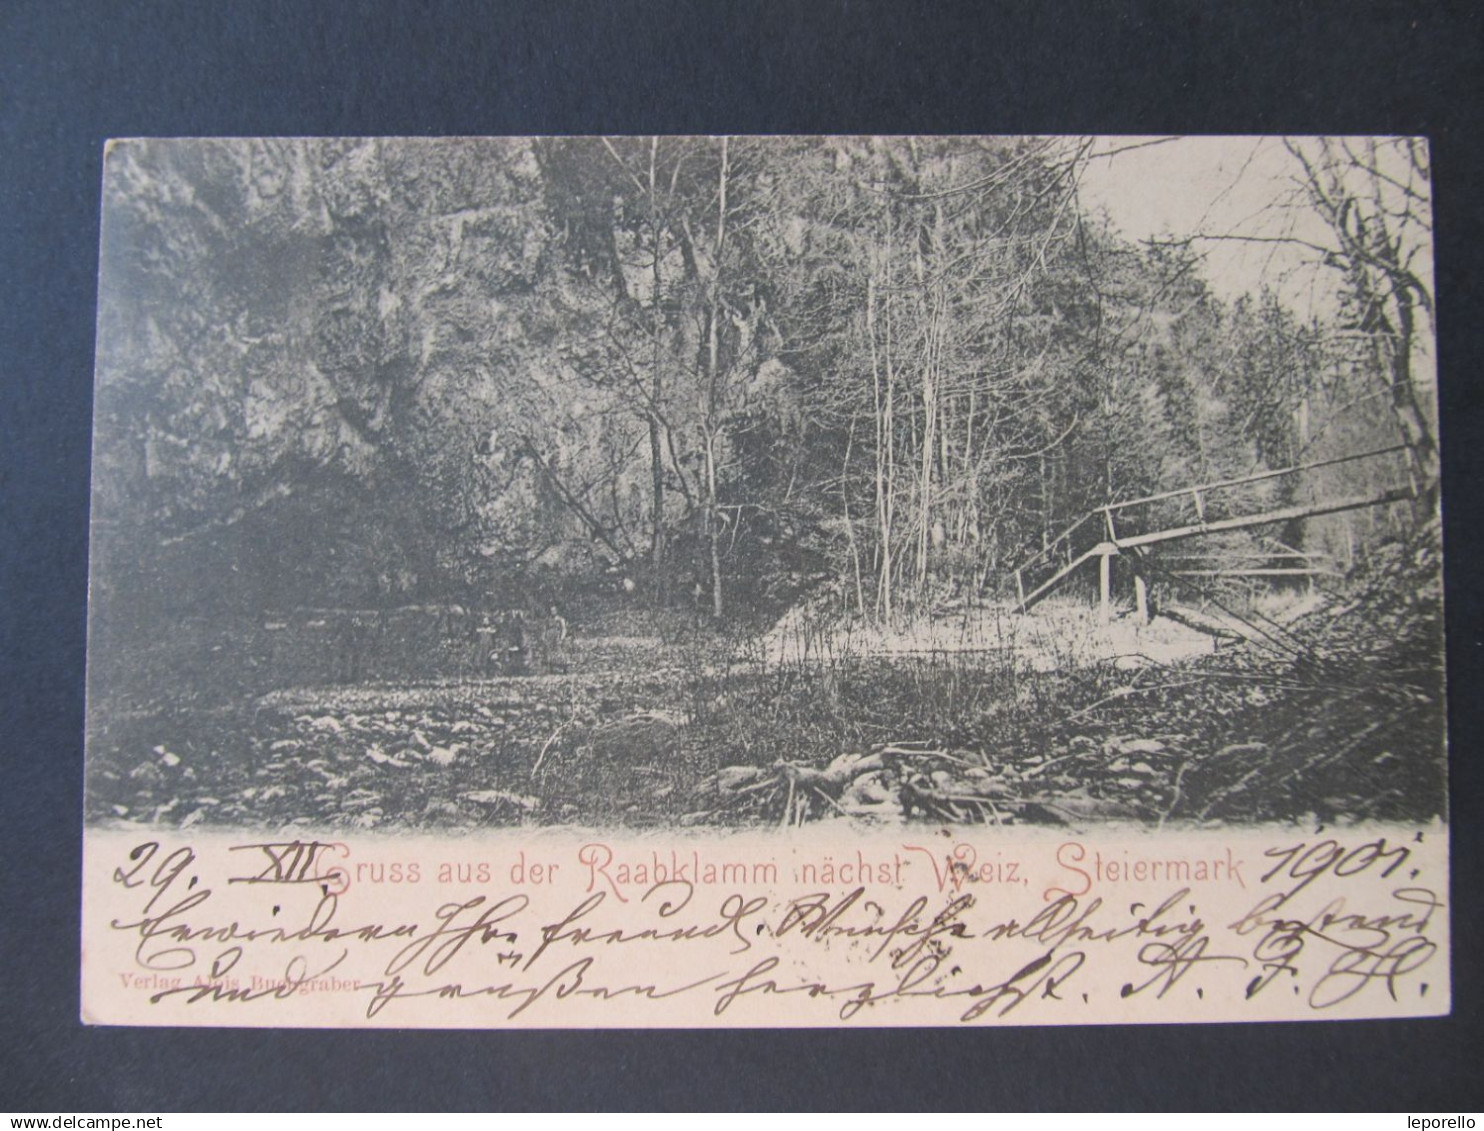 29. XII. Gruss aus der Raabklamm nächst Weiz, Steiermark 1901.
Erwiedern Ihre freundl. Wünsche allseitig bestend
Verlag Alois Buchgraber
und grüßen herzlichst. A. F. H.
www.delcampe.net
leporello